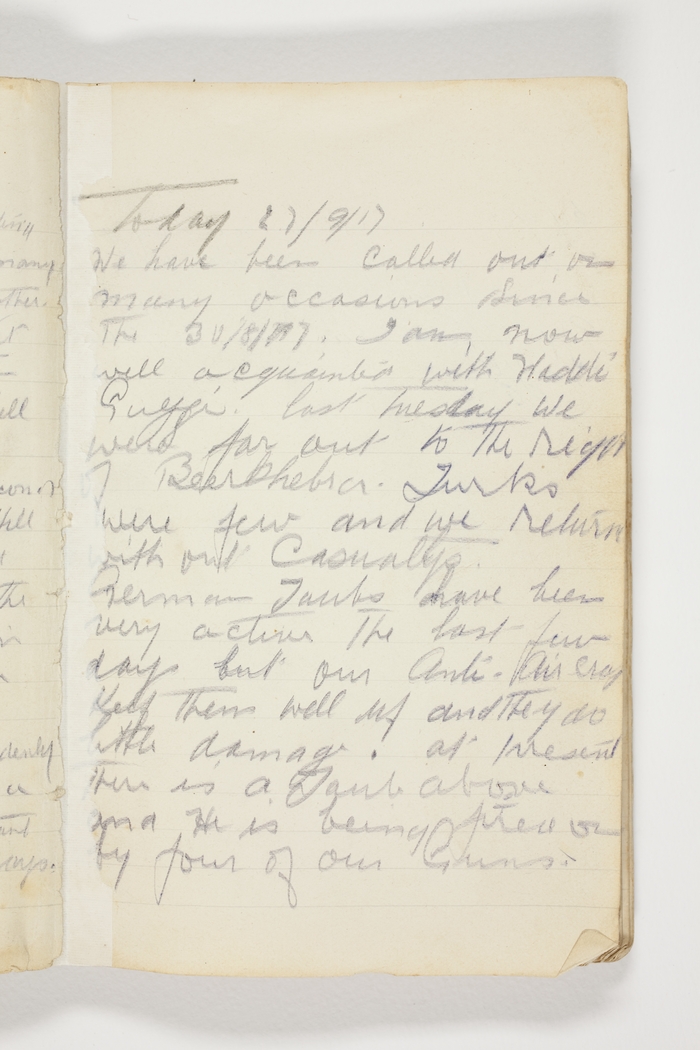 Today 27/9/17
We have been called out on
many occasions since
the 30/8/17. I am now
well acquainted with Waddi
Guzzi. last tuesday we
were far out to the right
of Bearshebra. Turks
were few and we return
with out Casualtys.
German Taubs have been
very active the last few
days but our Anti-Aircraf
kept them well up and they do
little damage. at present
there is a Taub above
and He is being fired on
by four of our Guns.
many
ther.
ill
the
denly
ays.